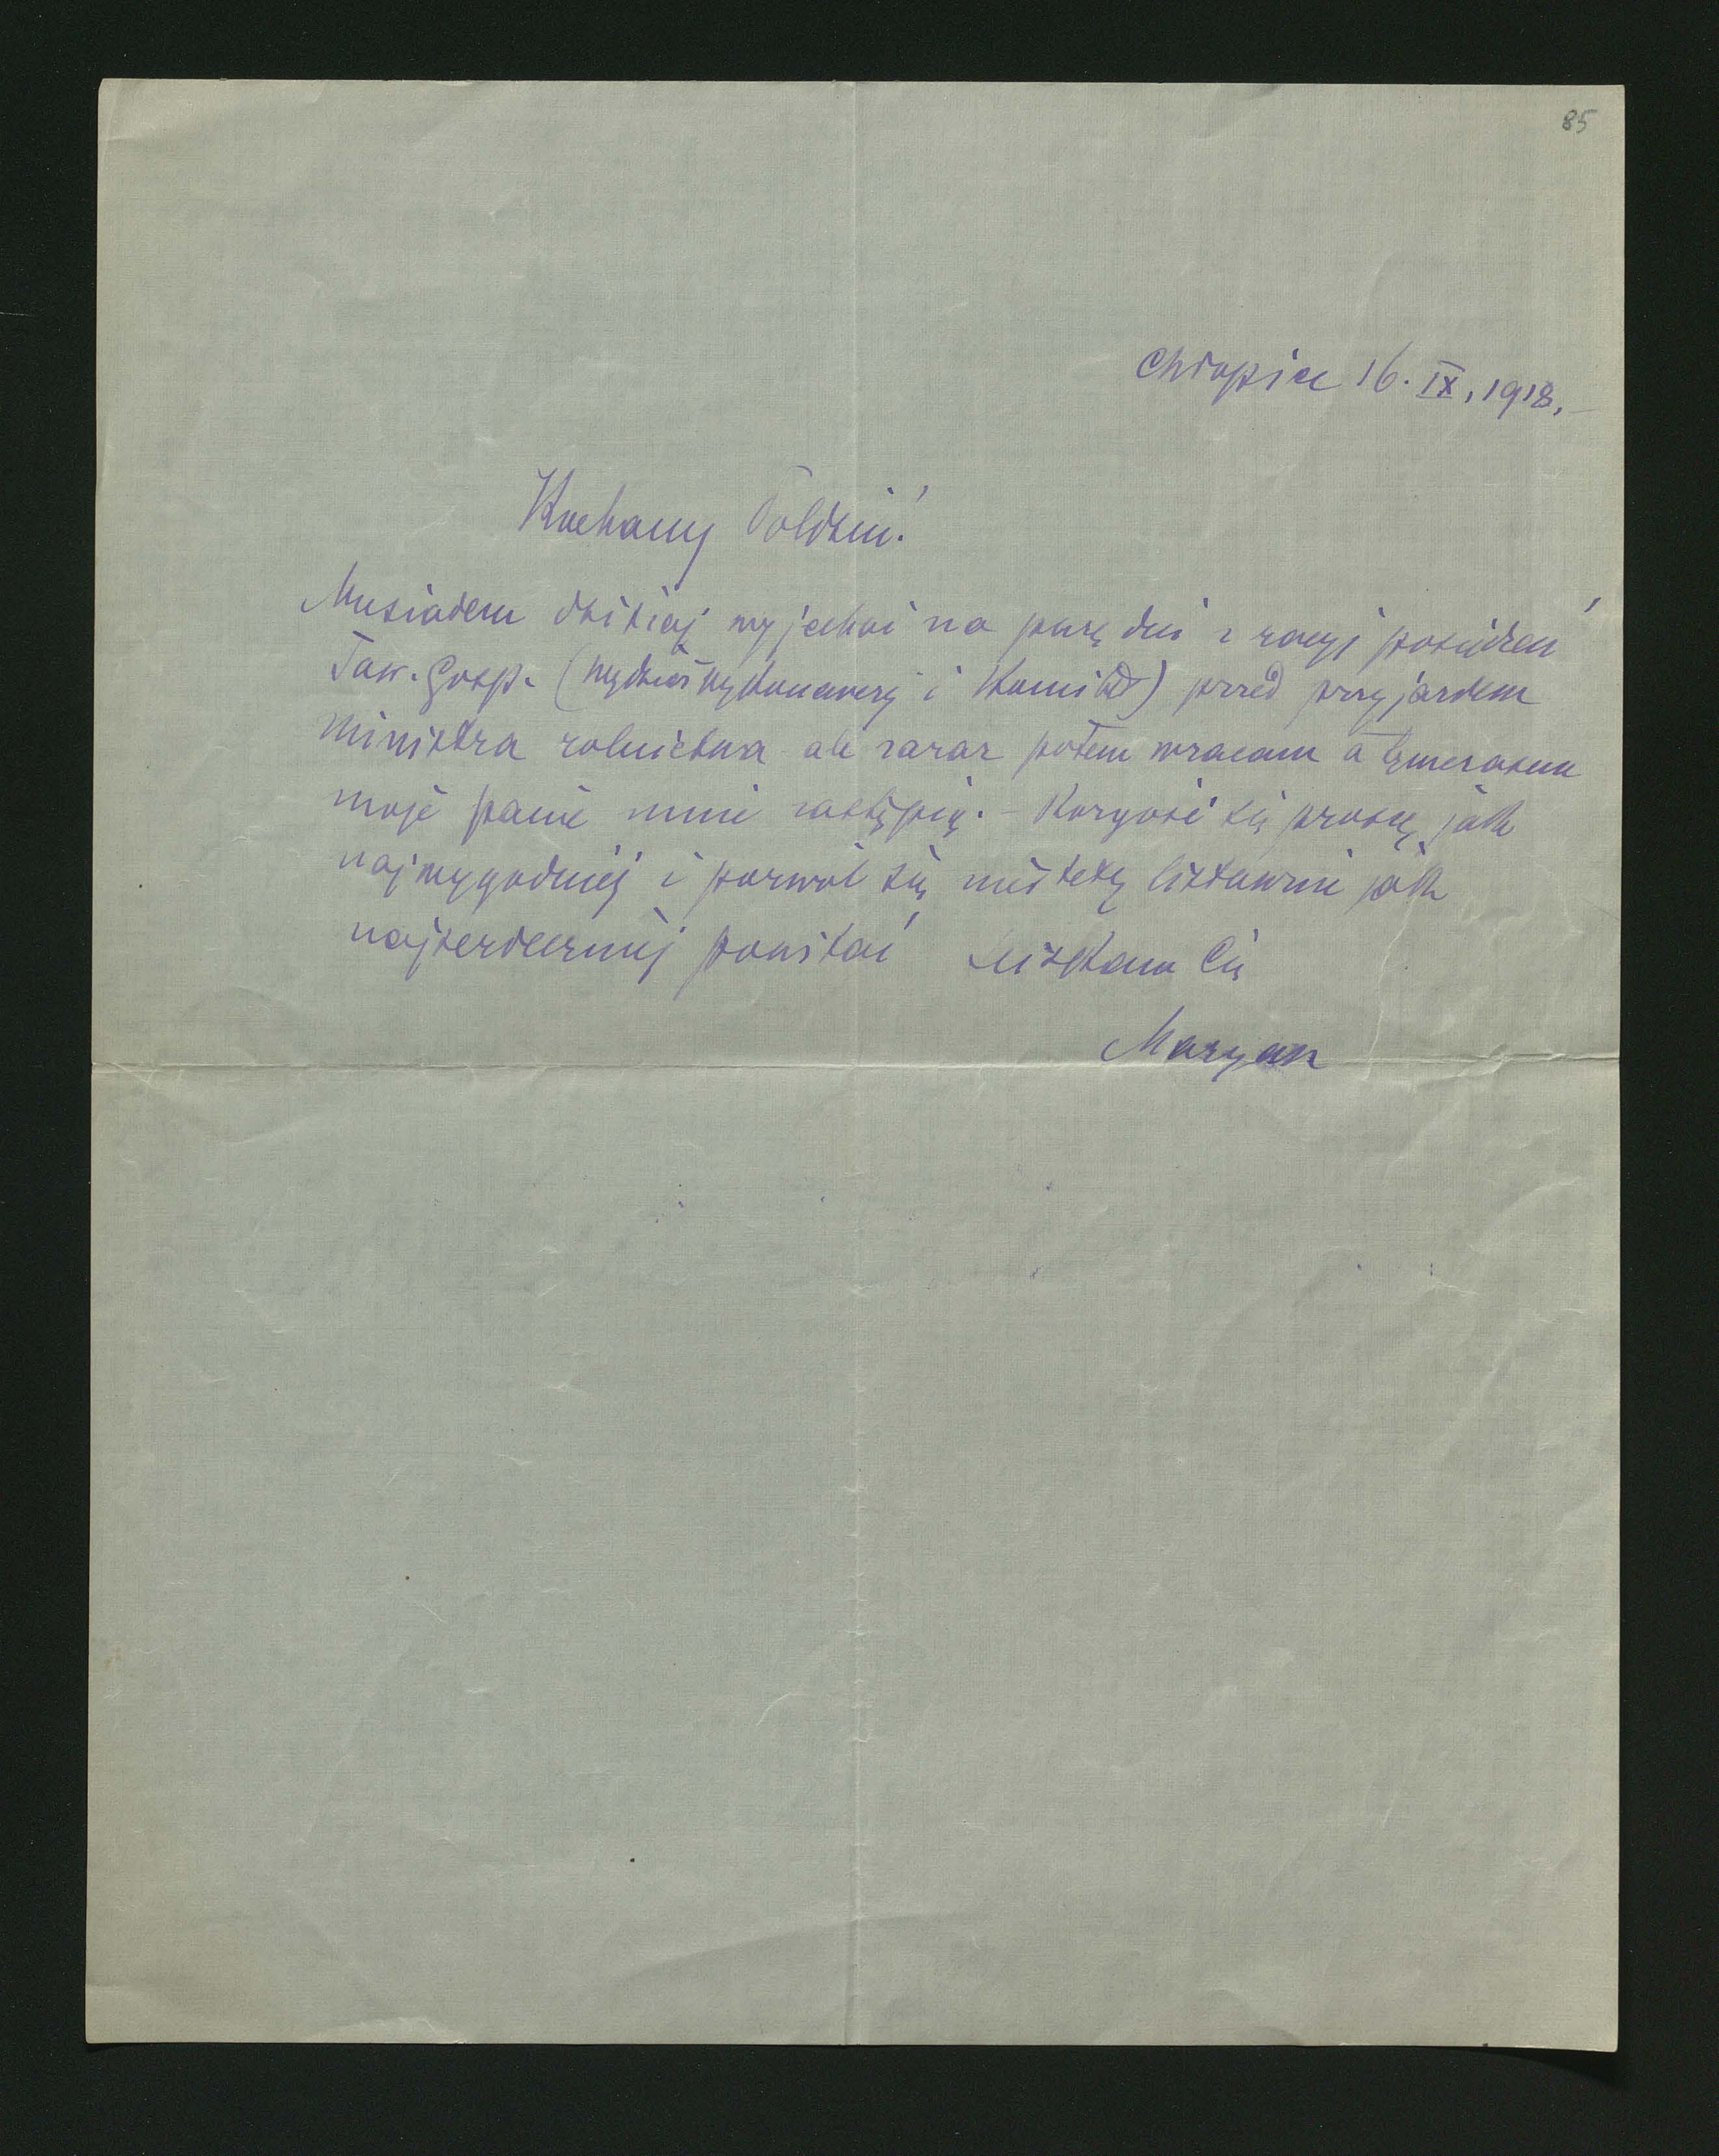 85
Chłopice 16. IX, 1918.
Kochany Poldziu!
Musiałem dzisiaj wyjechać na parę dni z racyi posiedzeń
Tow. Gosp. (wydział wykonawczy i Komitet) przed przyjazdem
ministra rolnictwa ale zaraz potem wracam a tymczasem
moje panie mnie zastąpią. - Rozgość się proszę jak
najwygodniej i pozwól się niestety listownie jak
najserdeczniej powitać Ściskam Cię
Maryan